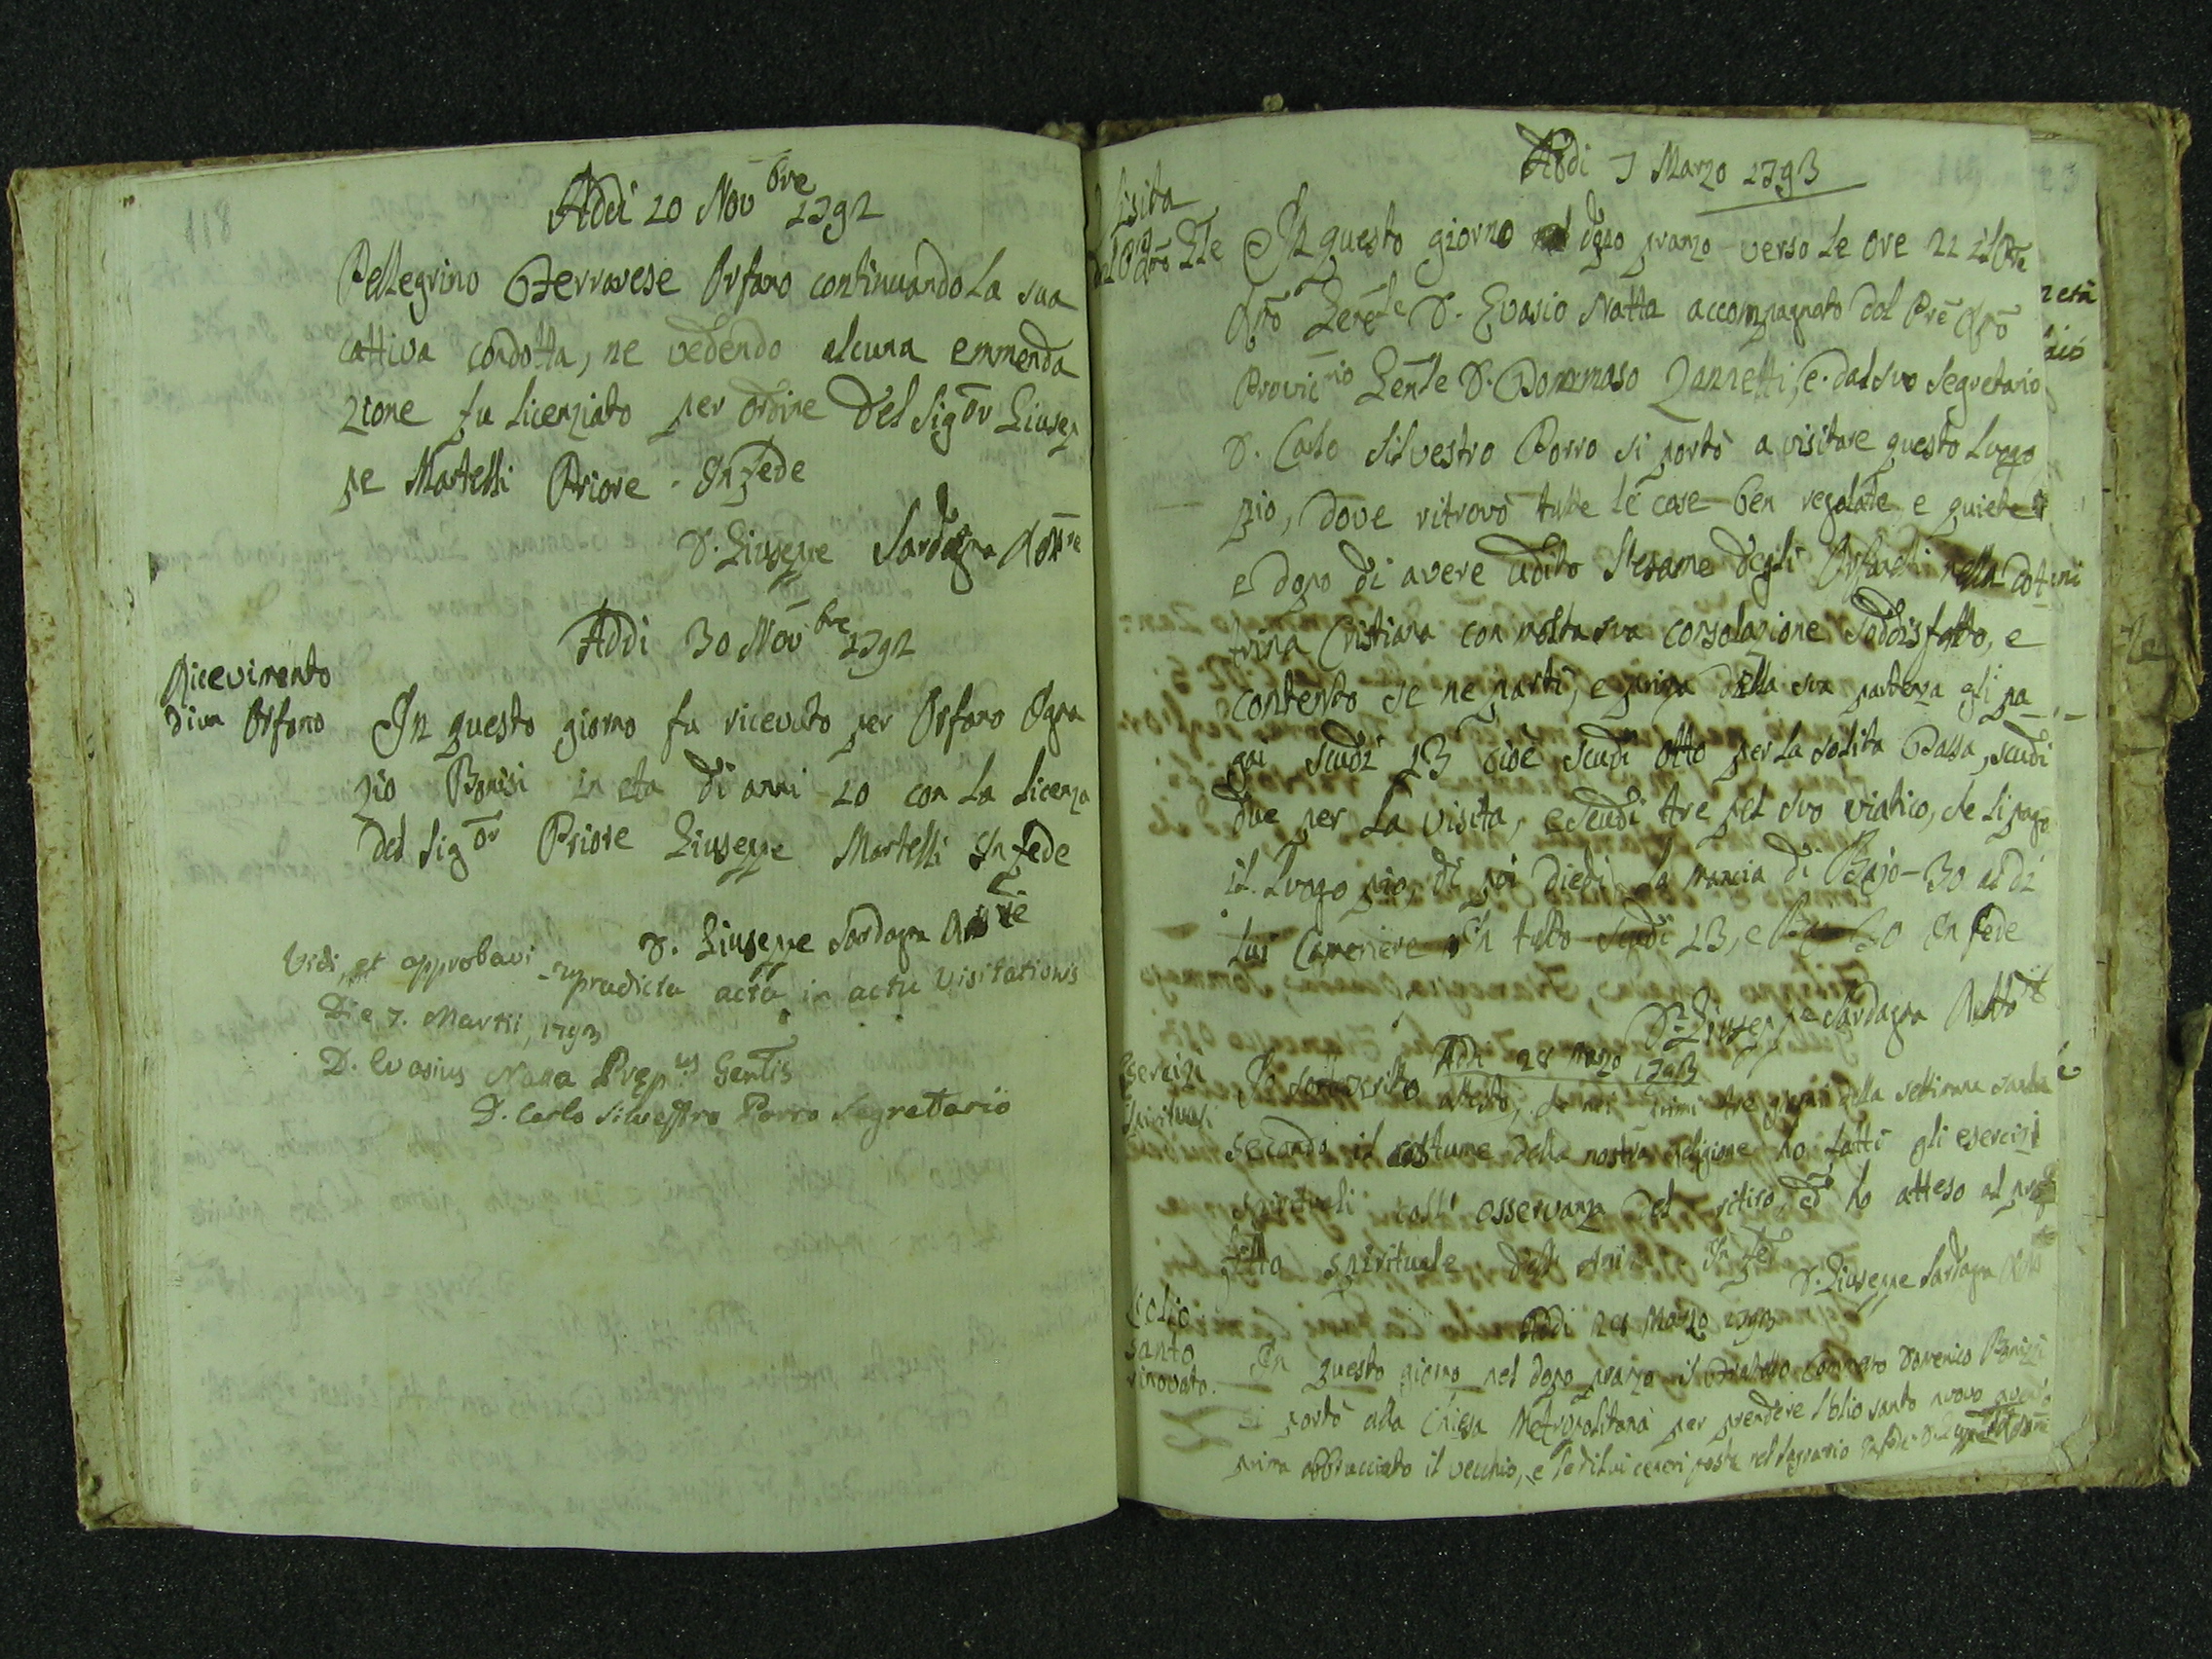 118
Addi 20 Nov bre 1792
Pellegrino Ferrarese Orfano continuando la sua
cattiva condotta, ne vedendo alcuna emmenda
zione fu licenziato per ordine del Sig or Giusep
pe Martelli Priore. In fede
D. Giuseppe Sardagna
Addi 30 Nov bre 1792
Ricevimento
di un Orfano
In questo giorno fu ricevuto per Orfano Igna
zio Bonisi in eta di anni 10 con la licenza
del Sig or Priore Giuseppe Martelli In fede
D. Giuseppe Sardagna
Vidi, et approbavi supradicta acta in actu Visitationis
Die 7. Martii, 1793
D. Evasius Natta Prep us Gen lis
D. Carlo Silvestro Porro Segrettario
Addi 7 Marzo 1793
Visita
In questo giorno dopo pranzo verso le ore 22 il Pre
Rmo Genle D. Evasio Natta accompagnato dal Pre Rmo
D. Tommaso Zannetti, e dal suo Segretario
D. Carlo Silvestro Porro si portò a visitare questo Luogo
pio, dove ritrovò tutte le cose ben regolate e quiete
e dopo di avere udito l'esame degli nella dot
trina Cristiana con molta sua consolazione soddisfatto, e
contento se ne partì, e prima della sua partenza gli pa
gai scudi 13 cioè scudi otto per la solita Tassa, scudi
due per la visita, e scudi tre pel suo viatico, che li pagò
il Luogo pio, di poi diedi la mancia di Bajo- 30 al di
lui Cameriere In tutto scudi 13, e 30 In fede
D. Giuseppe Sardagna
Addi 28 Marzo 1793
Esercizi
Spirituali
Io sottoscritto attesto, che nei primi tre giorni della settimana santa
secondo il costume della nostra religione ho fatti gli esercizi
spirituali coll' osservanza del ritiro, ed ho atteso al pro
fitto spirituale dell' In fede
D. Giuseppe Sardagna
Addi 28 Marzo 1793
Olio
Santo
rinovato.
In questo giorno nel dopo pranzo il Domenico
si portò alla Chiesa Metropolitana per prendere l'olio santo nuovo
prima abbrucciato il vecchio, e le di lui ceneri poste nel sagrario In fede